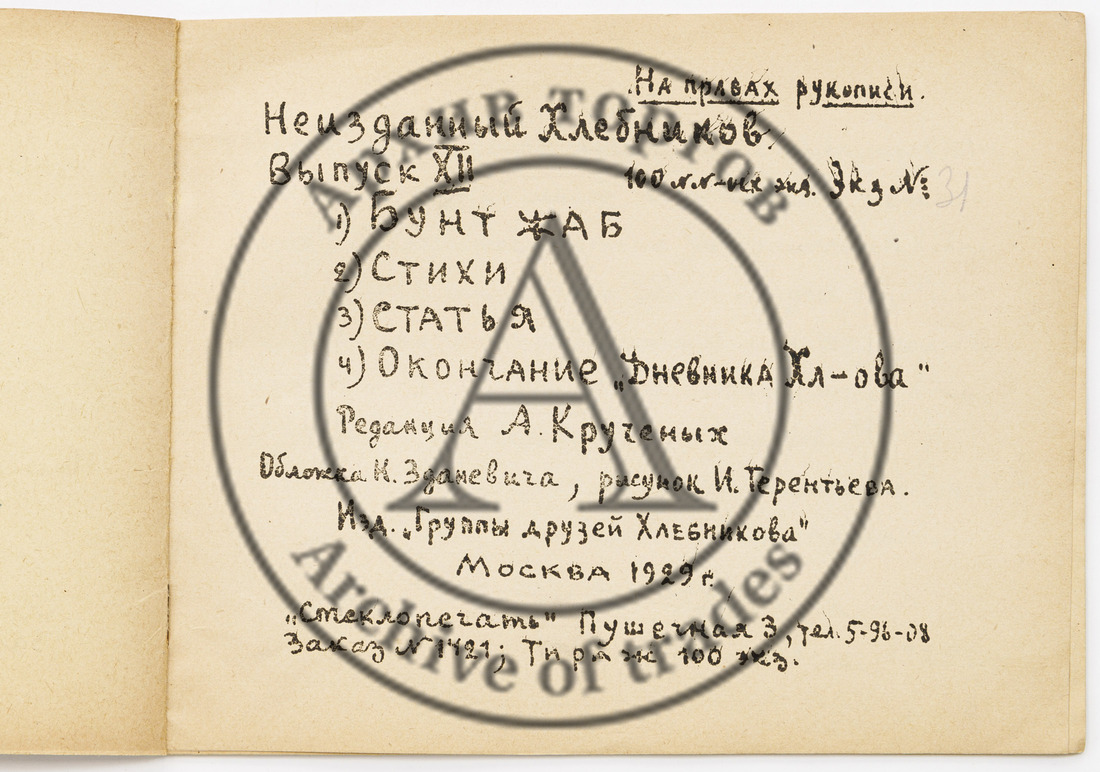 На правах рукописи.
Неизданный Хлебников.
Выпуск XII
100 нум-ых экз. Экз №: 31
1) Бунт жаб
2) Стихи
3) Статья
4) Окончание „Дневника Хл-ова"
Редакция А. Крученых
Обложка К. Зданевича, рисунок И. Терентьева.
Изд. „Группы друзей Хлебникова"
Москва 1929 г.
„Стеклопечать" Пушечная 3, тел. 5-96-08
Заказ № 1421; Тираж 100 экз.
Архив торгов
Archive of trades
A